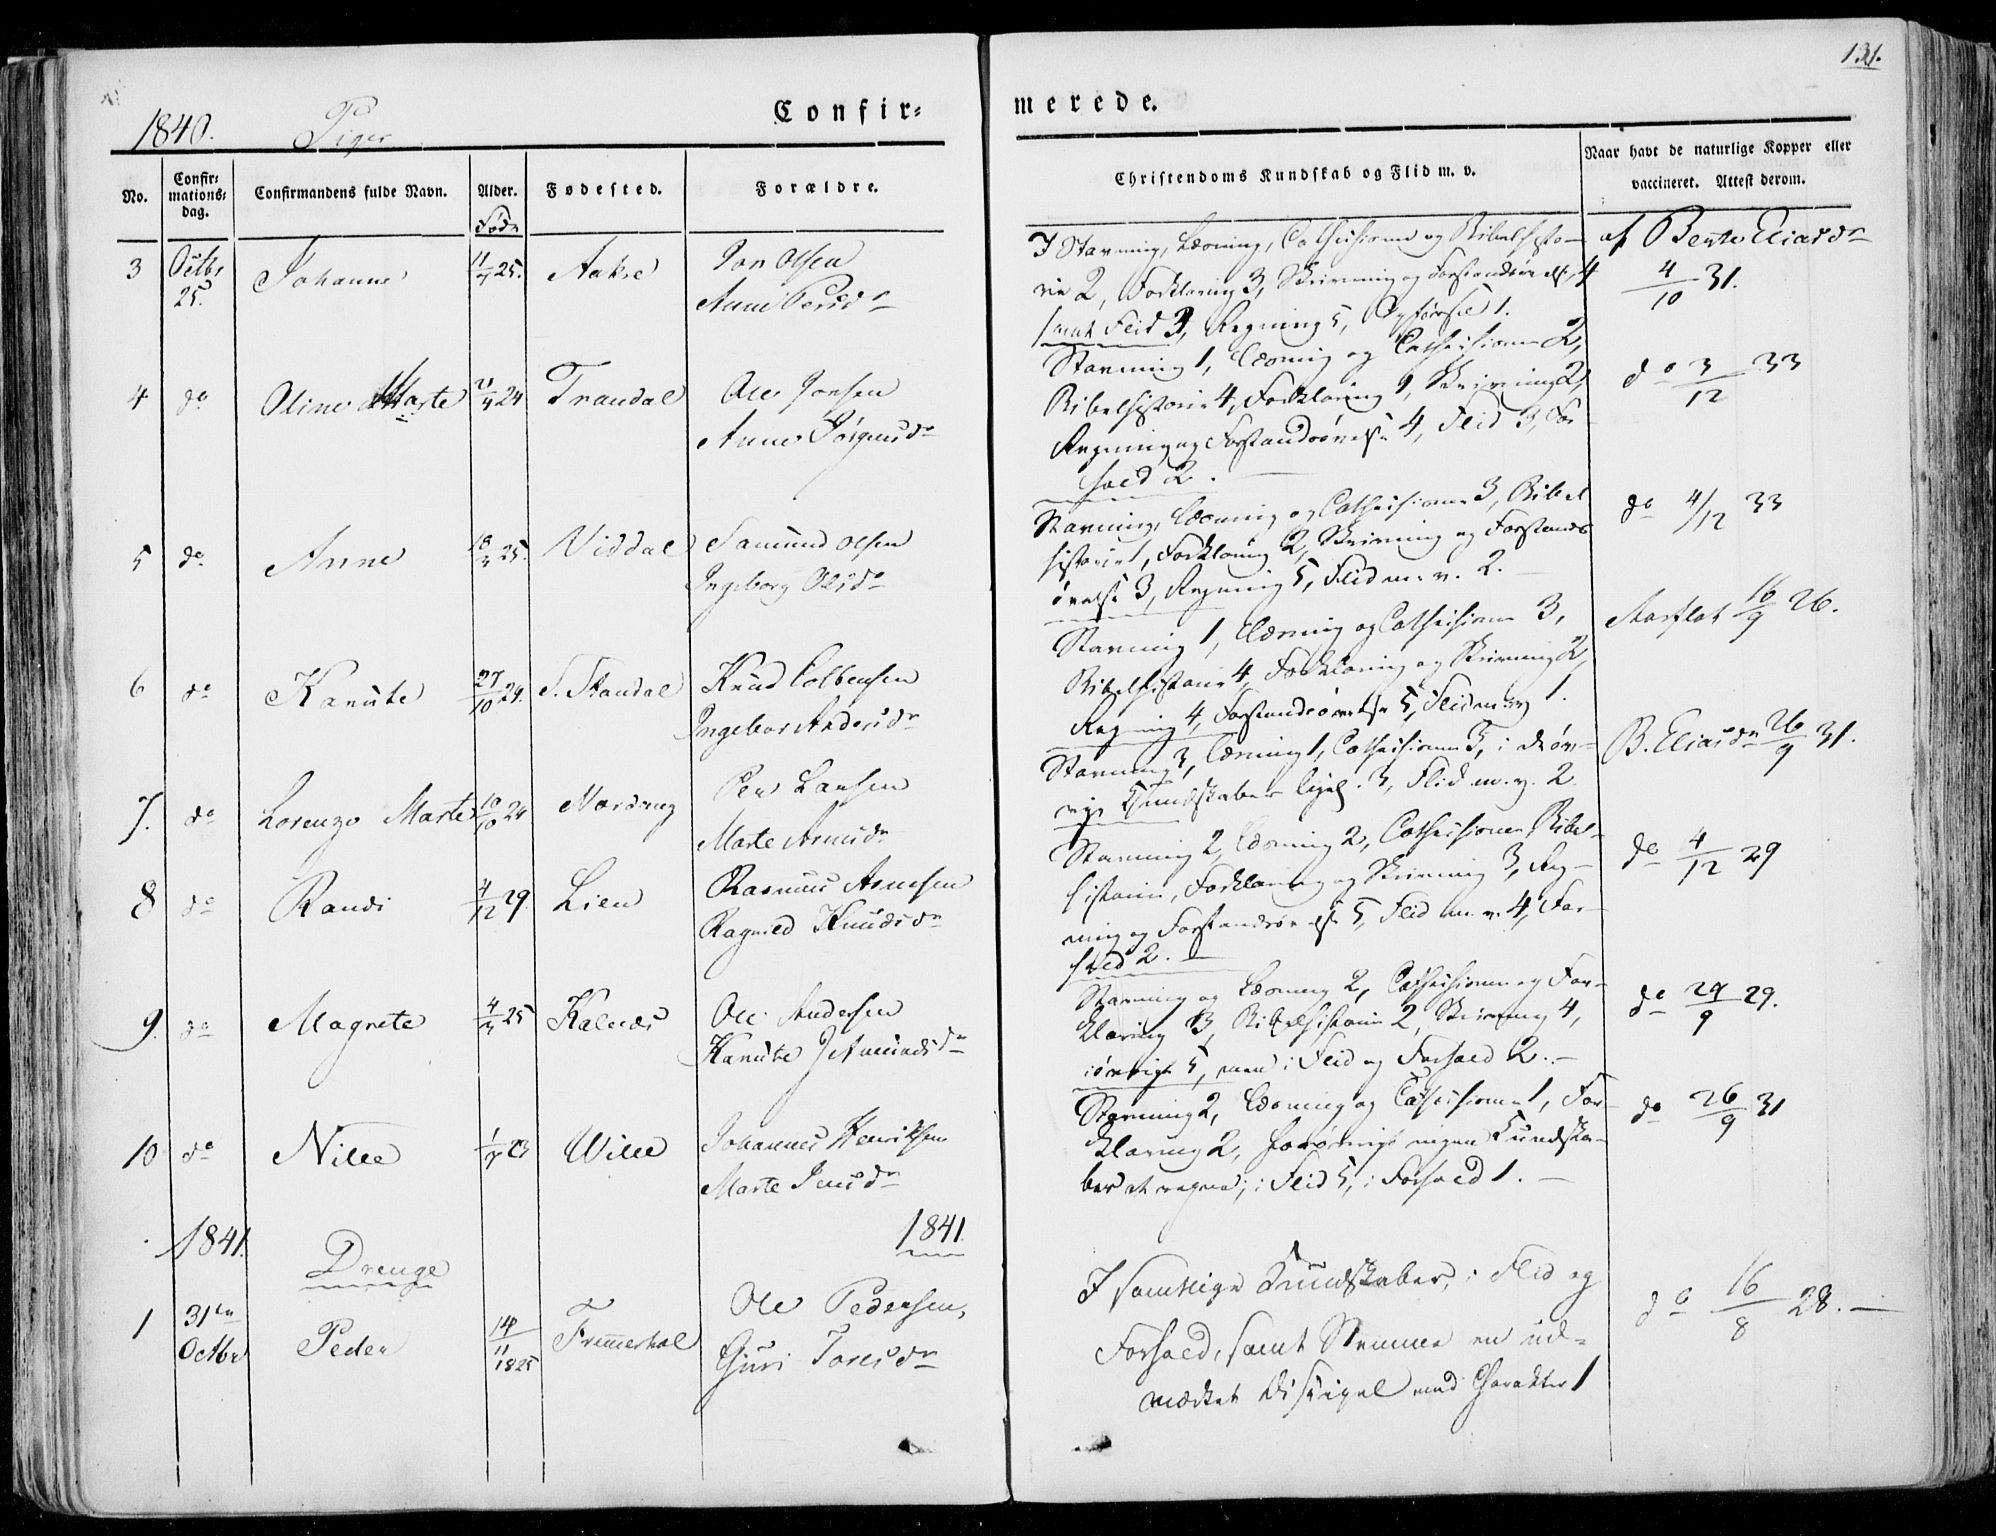 131.
1840. Piger
Confir=
merede.
No.
Confir=
mations=
dag.
Confirmandens fulde Navn.
Alder.
Født
Fødested.
Forældre.
Christendoms Kundskab og Flid m. v.
Naar havt de naturlige Kopper eller
vaccineret. Attest derom.
3 Octbr 25. Johanne 11/7 25. Aakre Jon Olsen
Anne Persdr
I Stavning, Læsning, Cathechisme og Bibelhisto-
rie 2, Forklaring 3, Skrivning og Forstandsøvelse 4
samt Flid 3, Regning 5, Opførsel 1.
af Bente Eliasdr
4/10 31.
4 do Oline Marte 24 Trandal Ole Jonsen
Anne Jørgensdr
Stavning 1, Læsning og Cathechisme 2,
Bibelhistorie 4, Forklaring 1, Skrivning 2,
Regning og Forstandsøvelse 4, Flid 3, For
hold 2.
do 3/12 33
5 do Anne 25. Viddal Samund Olsen
Ingeborg Olsdr
Stavning, Læsning og Cathechisme 3, Bibel
historie 1, Forklaring 2, Skrivning og Forstands
øvelse 3, Regning 5, Flid m. v. 2.
do 4/12 33
6 do Kanute 27/10 24. S. Standal Knud Colbensen
Ingebor Andersdr
Stavning 1, Læsning og Cathechisme 3,
Bibelhistorie 4, Forklaring og Skrivning 2,
Regning 4, Forstandsøvelse 5, Flid m. v. 1.
Aarflot 16/9 26.
7. do Lorenze Marte 10/10 24 Nordang Per Larsen
Marte Arnesdr
Stavning 3, Læsning 1, Cathechisme 5, i de øv-
rige Kundskaber ligel. 3, Flid m. v. 2
B. Eliasdr 26/9 31.
8 do Randi 4/12 29. Lien Rasmus Arnesen
Ragnild Knudsdr
Stavning 2, Læsning 2, Cathechisme, Bibel-
historie, Forklaring og Skrivning 3, Reg-
ning og Forstandsøvelse 5, Flid m. v. 4, For-
hold 2.
do 4/12 29
9. do Magrete 25 Kalnæs Ole Andersen
Kanute
Stavning og Læsning 2, Cathechisme og For-
klaring 3, Bibelhistorie 2, Skrivning 4,
iøvrigt 5, men i Flid og Forhold 2.
do 29/9 29.
10 do Nille 23 Wille Johannes Henriksen
Marte
Stavning 2, Læsning og Cathechisme 1, For-
klaring 2, forøvrigt ingen Kundska-
ber at regne; i Flid 5, i Forhold 1.
do 26/9 31
1841. Drenge 1841
1 31te Octbr Peder 14/11 1825 Tremerhol Ole Pedersen,
Guri Toresdr
I samtlige Kundskaber, i Flid og
Forhold, samt Stemme en ud-
mærket Discipel med Charakter 1
do 16/8 28.